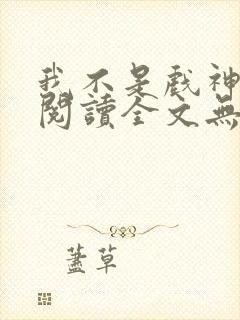 我不是戲神
閱讀全文無
蓋草